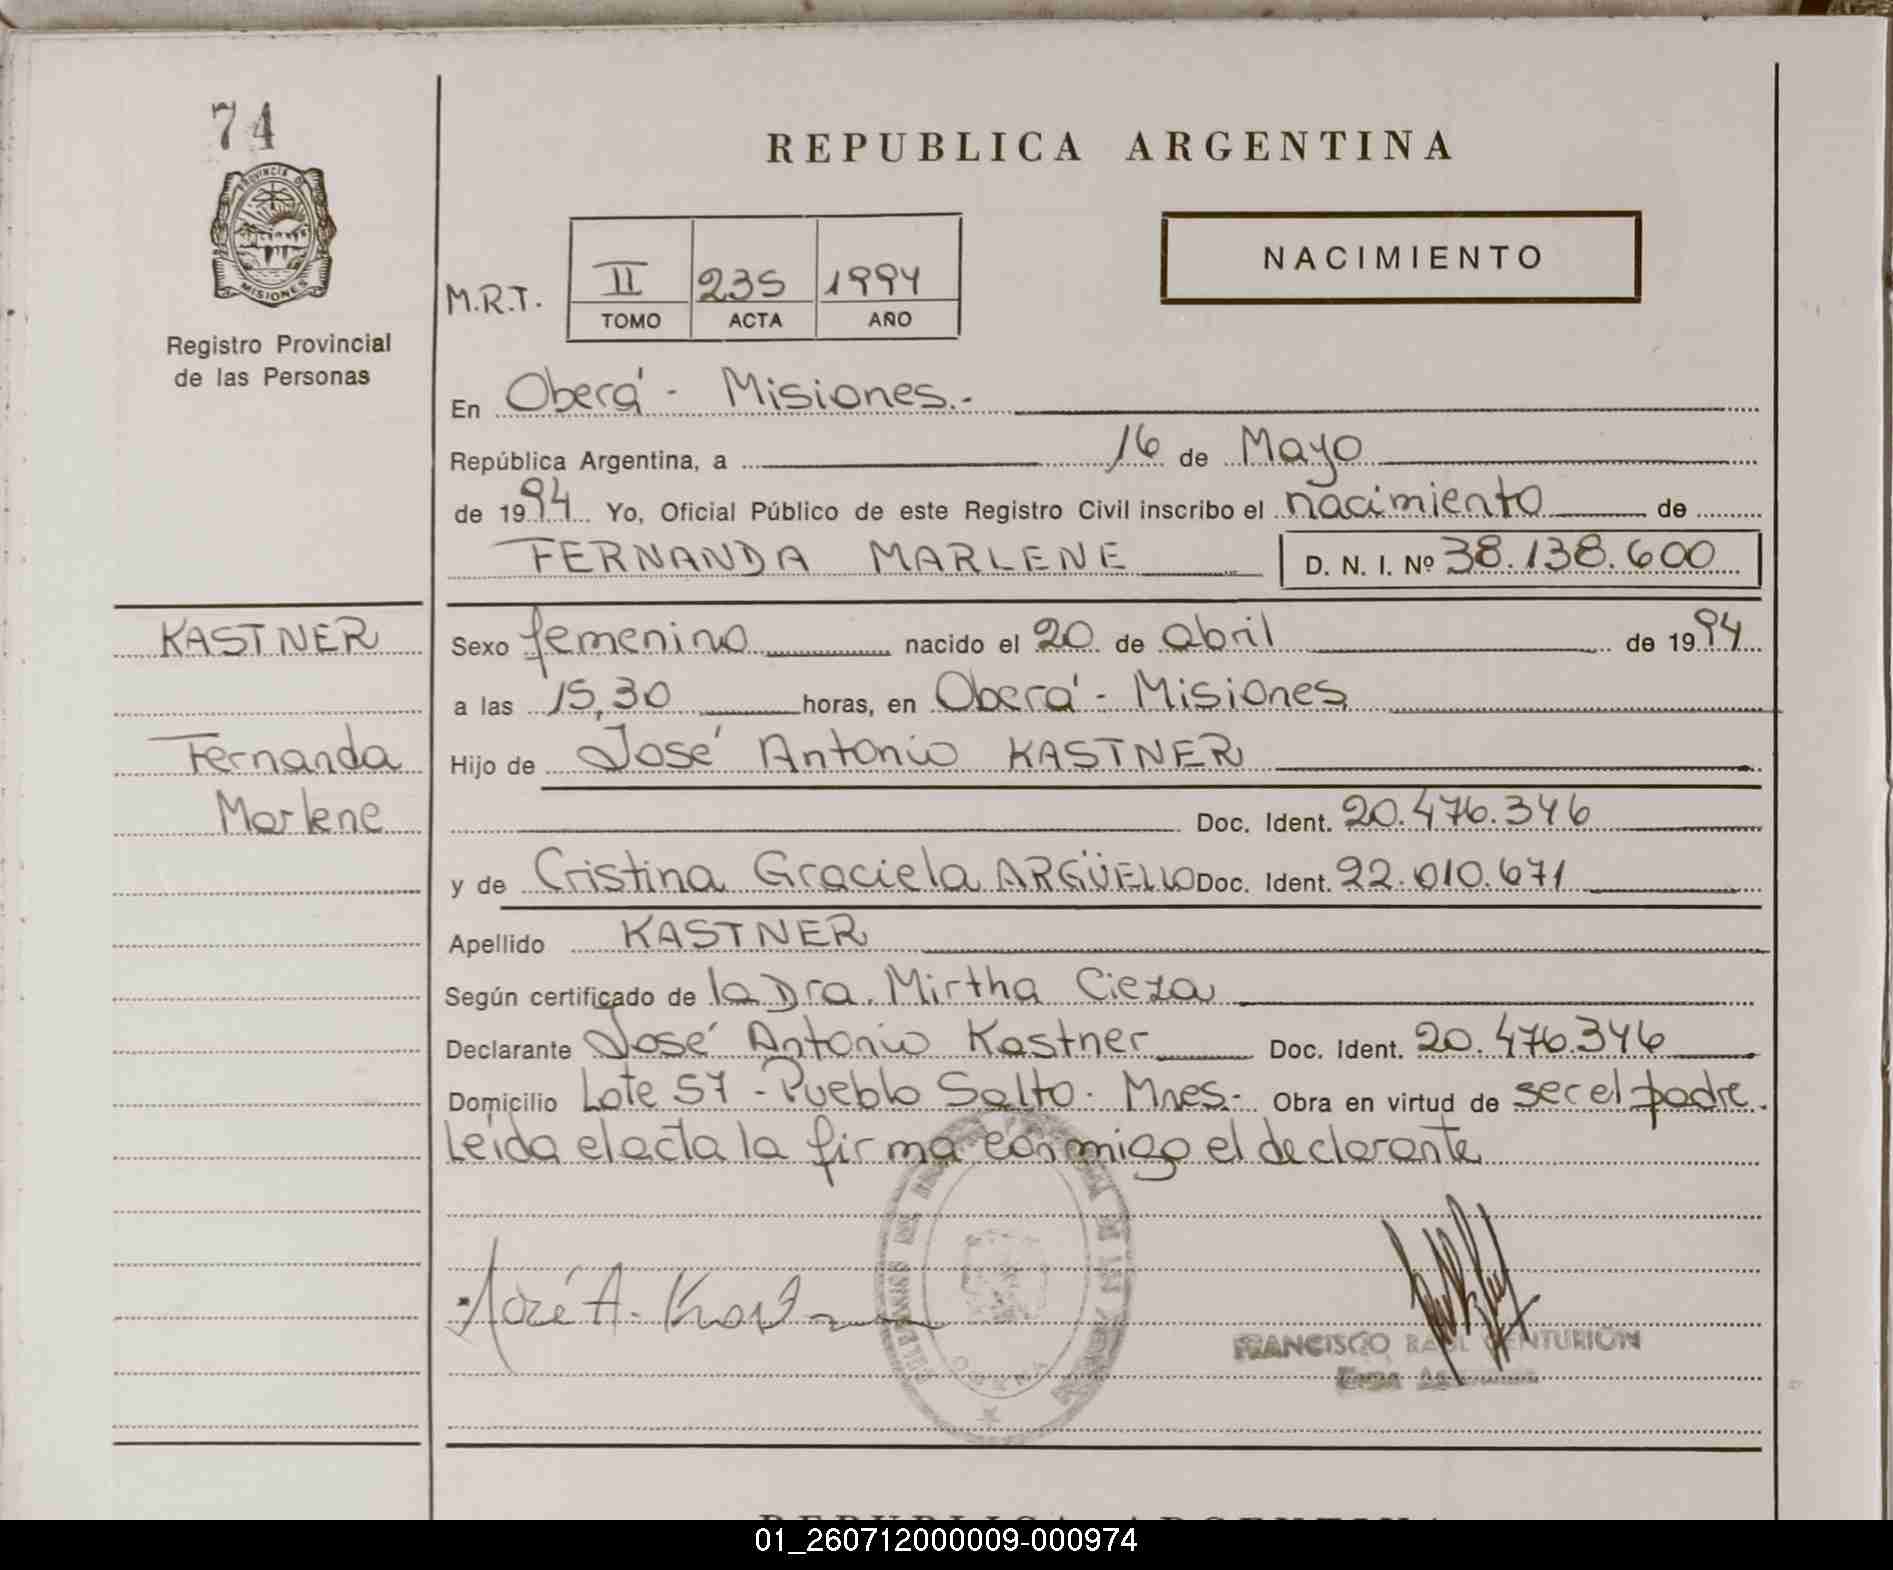 74
PROVINCIA DE
MISIONES
Registro Provincial
de las Personas
REPUBLICA ARGENTINA
NACIMIENTO
M.R.T.
II 235 1994
TOMO ACTA AÑO
En Oberá - Misiones.-
República Argentina, a 16 de Mayo
de 1994 Yo, Oficial Público de este Registro Civil inscribo el nacimiento de
FERNANDA MARLENE D. N. I. Nº 38.138.600
KASTNER
Fernanda
Marlene
Sexo femenino nacido el 20 de abril de 1994
a las 15,30 horas, en Oberá - Misiones
Hijo de José Antonio KASTNER
Doc. Ident. 20.476.346
y de Cristina Graciela ARGÜELLO Doc. Ident. 22.010.671
Apellido KASTNER
Según certificado de la Dra. Mirtha Cieza
Declarante José Antonio Kastner Doc. Ident. 20.476.346
Domicilio Lote 57 - Pueblo Salto. Mnes.- Obra en virtud de ser el padre.
Leída el acta la firma conmigo el declarante
José A. Kastner
FRANCISCO RAUL CENTURION
REPUBLICA ARGENTINA
01_260712000009-000974